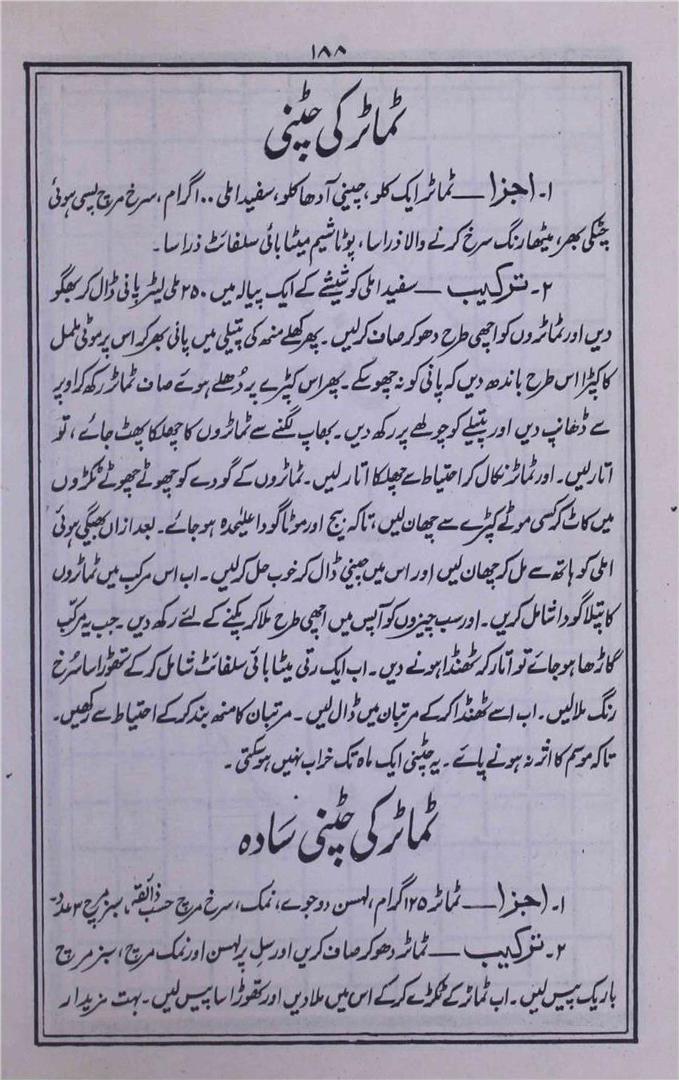 ۱۸۸
ٹماٹر کی چٹنی
۱۔ اجزا — ٹماٹر ایک کلو، چینی آدھا کلو، سفید املی ۱۰۰ گرام، سرخ مرچ پسی ہوئی
چٹکی بھر، میٹھا رنگ سرخ کرنے والا ذرا سا، پوٹاشیم میٹا بائی سلفائٹ ذرا سا۔
۲۔ ترکیب — سفید املی کو شیشے کے ایک پیالہ میں ۲۵۰ ملی لیٹر پانی ڈال کر بھگو
دیں اور ٹماٹروں کو اچھی طرح دھو کر صاف کرلیں۔ پھر کھلے منھ کی پتیلی میں پانی بھر کر اس پر موٹی ململ
کا کپڑا اس طرح باندھ دیں کہ پانی کو نہ چھوسکے۔ پھر اس کپڑے پر دُھلے ہوئے صاف ٹماٹر رکھ کر اوپر
سے ڈھانپ دیں اور پتیلے کو چولھے پر رکھ دیں۔ بھاپ لگنے سے ٹماٹروں کا چھلکا پھٹ جائے، تو
اتارلیں۔ اور ٹماٹر نکال کر احتیاط سے چھلکا اتارلیں۔ ٹماٹروں کے گودے کو چھوٹے چھوٹے ٹکڑوں
میں کاٹ کر کسی موٹے کپڑے سے چھان لیں، تاکہ بیج اور موٹا گودا علیٰحدہ ہوجائے۔ بعد ازاں بھیگی ہوئی
املی کو ہاتھ سے مل کر چھان لیں اور اس میں چینی ڈال کر خوب حل کرلیں۔ اب اس مرکب میں ٹماٹروں
کا پتلا گودا شامل کریں۔ اور سب چیزوں کو آپس میں اچھی طرح ملا کر پکنے کے لئے رکھ دیں۔ جب یہ مرکّب
گاڑھا ہوجائے تو اتار کر ٹھنڈا ہونے دیں۔ اب ایک رتی میٹا بائی سلفائٹ شامل کرکے تھوڑا سا سُرخ
رنگ ملالیں۔ اب اسے ٹھنڈا کرکے مرتبان میں ڈال لیں۔ مرتبان کا منھ بند کرکے احتیاط سے رکھیں۔
تاکہ موسم کا اثر نہ ہونے پائے۔ یہ چٹنی ایک ماہ تک خراب نہیں ہوسکتی۔
ٹماٹر کی چٹنی سَادہ
۱۔ اجزا — ٹماٹر ۱۲۵ گرام، لہسن دو جوے، نمک، سرخ مرچ حسب ذائقہ، سبز مرچ ۳ عدد۔
۲۔ ترکیب — ٹماٹر دھو کر صاف کریں اور سِل پر لہسن اور نمک مرچ، سبز مرچ
باریک پیس لیں۔ اب ٹماٹر کے ٹکڑے کرکے اس میں ملادیں اور تھوڑا سا پیس لیں۔ بہت مزیدار